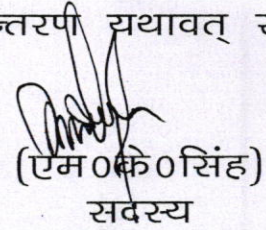 यथावत्
(एम०के०सिंह)
सदस्य